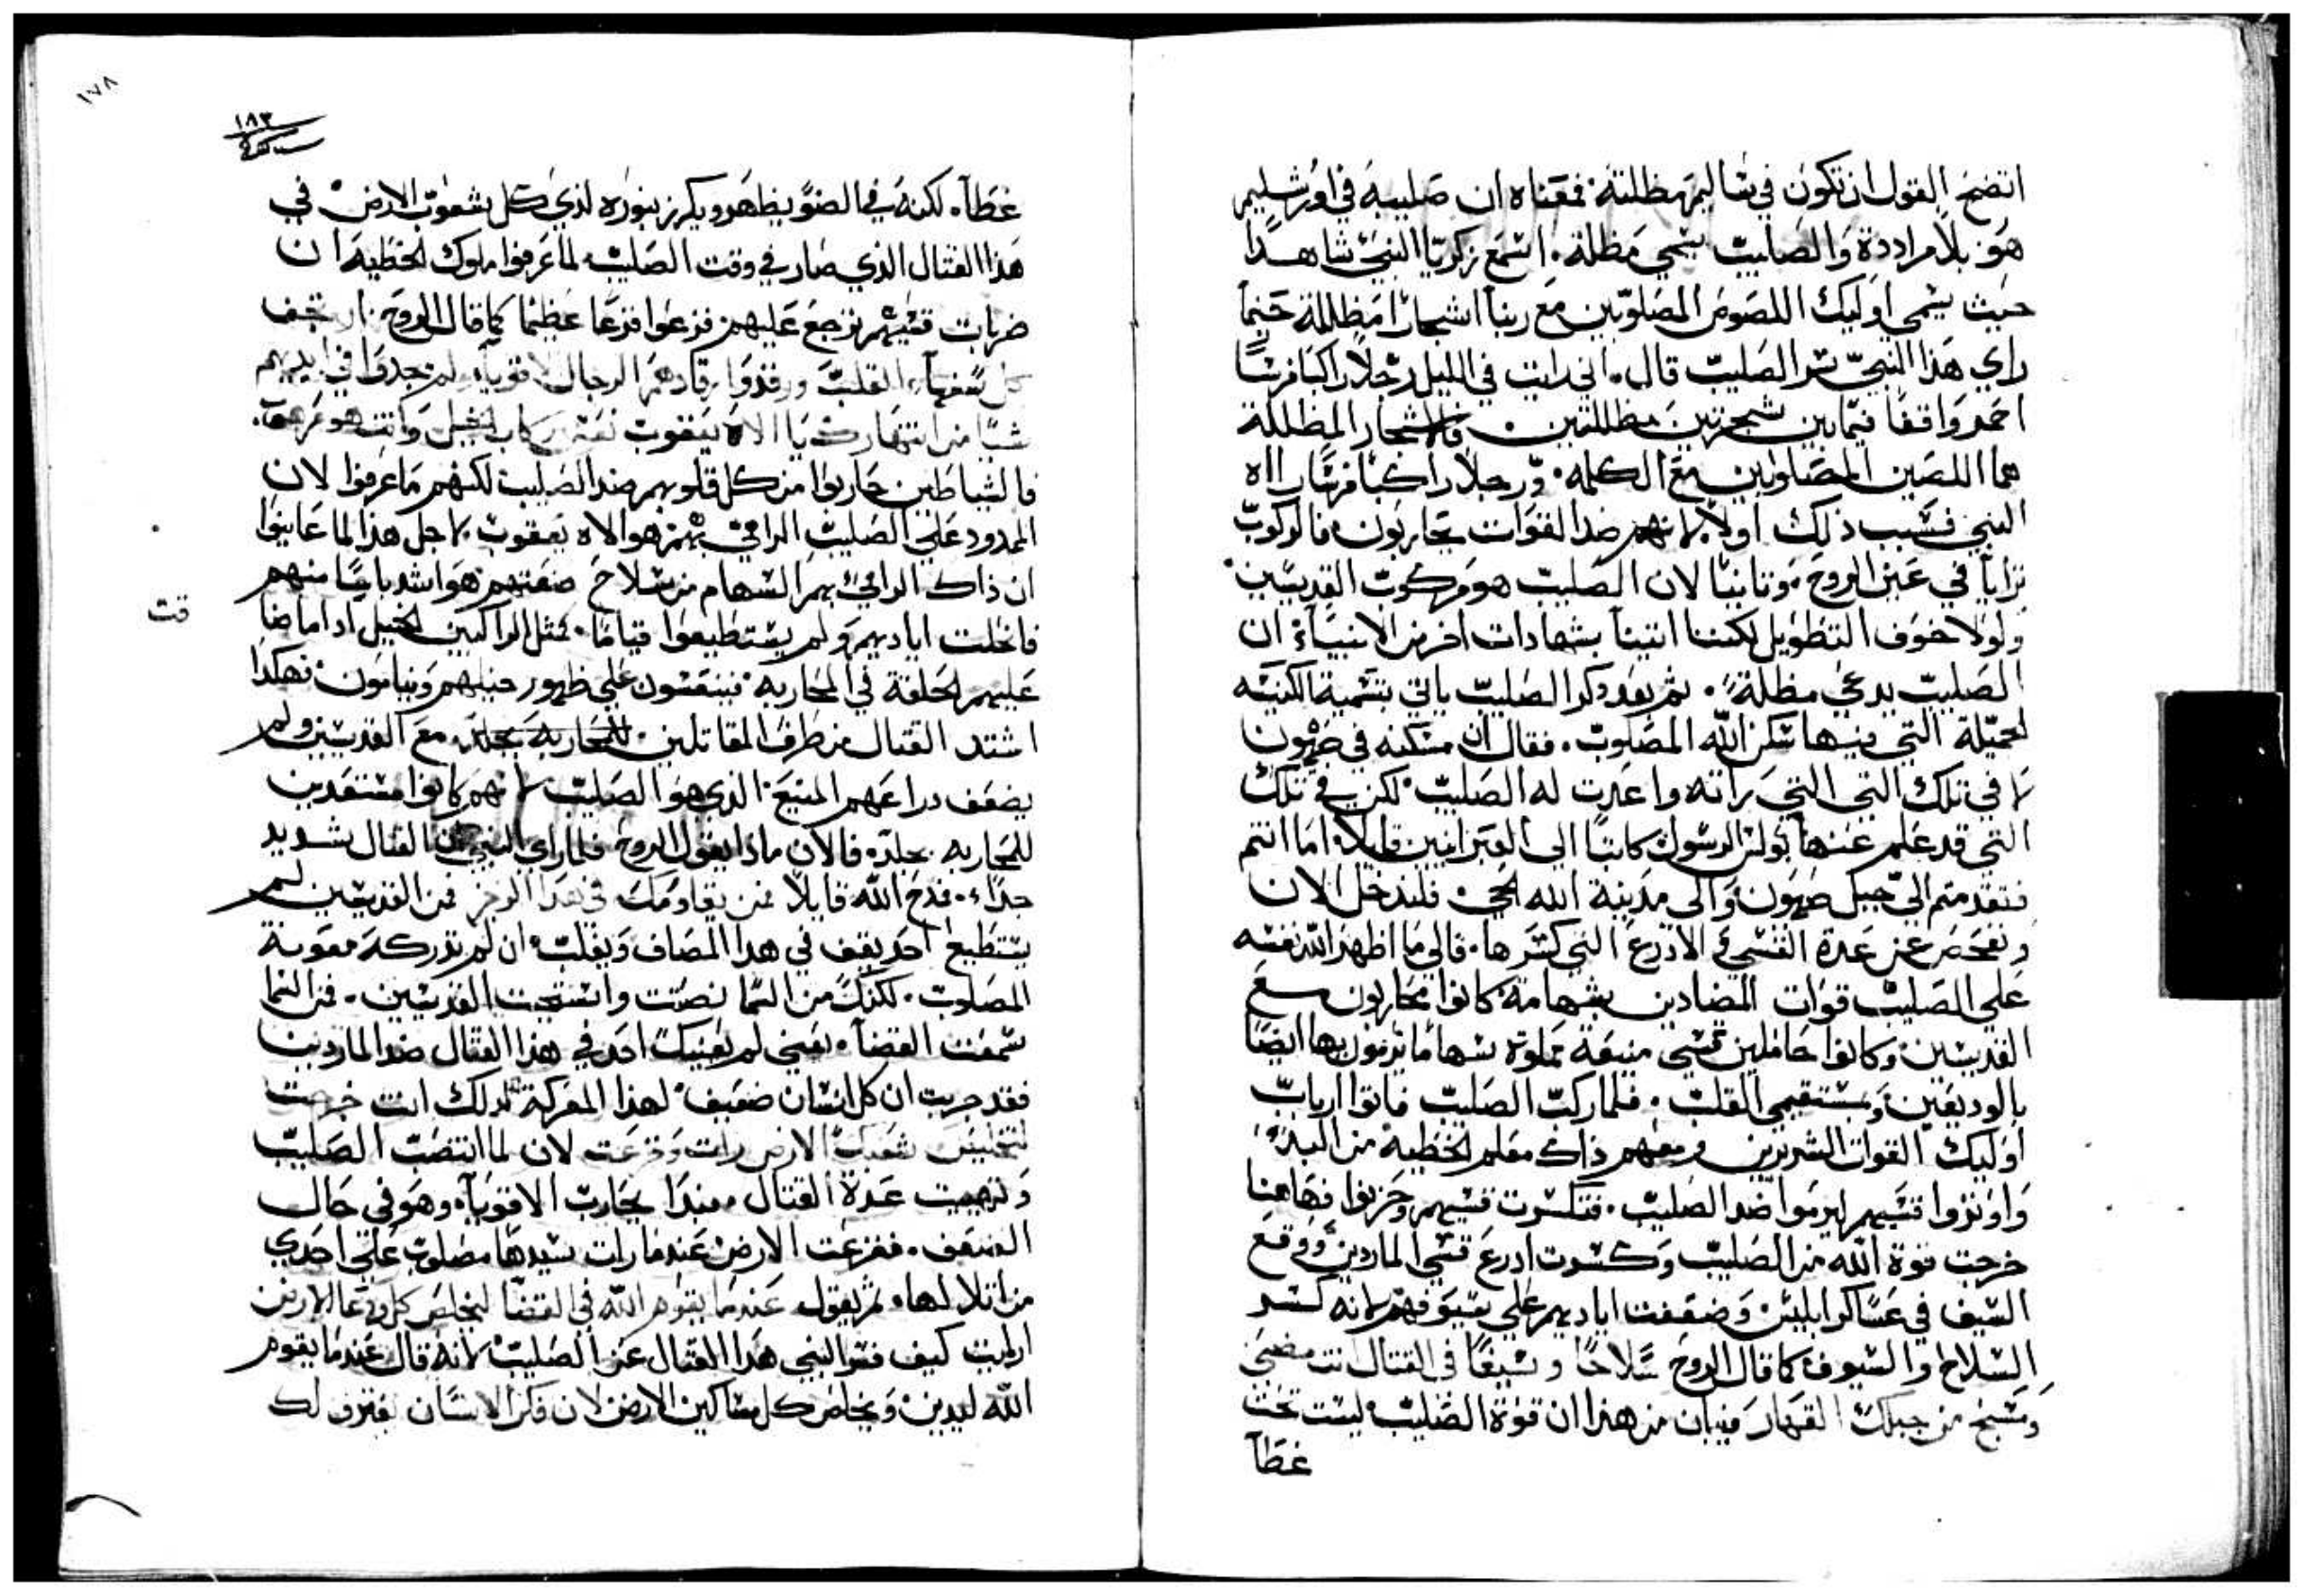 اتضح القول ان تكون في شاليم مظلته فمعناه ان صليبه في اورشليم
هو بلا مراددة والصليب يسمي مظلة. اسمع زكريا النبي شاهدا
حيث يسمي اوليك اللصوص المصلوبين مع ربنا اشجارا مظللة حينما
راي هذا النبي سر الصليب قال. اني رايت في الليل رجلا راكبا فرسا
احمر واقفا فيما بين شجرتين مظللتين. فالاشجار المظللة
هما اللصين المصلوبين مع الكلمه. ورجلا راكبا فرسا راه
النبي فسبب ذلك اولا لانهم ضد القوات يحاربون فالركوب
ترايا في عين الروح. وثانيا لان الصليب هو مركوب القديسين.
ولولا خوف التطويل لكننا اتينا بشهادات اخر من الانبياء ان
الصليب يدعي مظلة. ثم بعد ذكر الصليب ياتي بتسمية الكنيسه
الجميلة التي فيها سكن الله المصلوب. فقال ان مسكنه في صهيون
لا في تلك التي راته واعدت له الصليب لكن في تلك
التي قد علم عنها بولس الرسول كاتبا الي العبرانيين قايلا. اما انتم
فتقدمتم الي جبل صهيون والى مدينة الله الحي فلندخل الان
ونفحص عن عدة القسي الادرع التي كسرها. فالي ما اظهر الله نفسه
على الصليب قوات المضادين بشهامة كانوا يحاربون مع
القديسين وكانوا حاملين قسي منيعة مملوة سهاما يرمون بها ايضا
بالوديعين ومستقيمي القلب. فلما ركب الصليب فاتوا ارباب
اوليك القوات الشريرين ومعهم ذاك معلم الخطية من البدء
واوتروا قسيهم ليرموا ضد الصليب. فتكسرت قسيهم وحزنوا فهاهنا
خرجت قوة الله من الصليب وكسرت ادرع قسي الماردين ووقع
السيف في عساكر ابليس وضعفت اياديهم على سيوفهم لانه كسر
السلاح والسيوف كما قال الروح سلاحا وسيفا في القتال انت مضي
وتسبح من جبلك القهار فبان من هذا ان قوة الصليب ليست تحت
غطآ
١٧٨
١٨٣
غطآ. لكنه في الضو يظهر ويكرز بنوره لدي كل شعوب الارض في
هذا القتال الذي صار في وقت الصليب لما عرفوا ملوك الخطية ان
ضربات قسيهم ترجع عليهم فزعوا فزعا عظيما كما قال الروح ارتجف
كل سفهآ القلب ورقدوا رقادهم الرجال الاقويآ ولم يجدوا في ايديهم
شيا من انتهارك يا الاه يعقوب نعس ركاب الخيل وانت هو مرهوب.
فالشياطين حاربوا من كل قلوبهم ضد الصليب لكنهم ما عرفوا لان
الممدود على الصليب الرامي بهم هو الاه يعقوب لاجل هذا لما عاينوا
ان ذاك الرامي بهم السهام من سلاح ضعفهم هو اشد باسا منهم
فانحلت اياديهم ولم يستطيعوا قياما. مثل الراكبين الخيل اذا ما ضا
قت
عليهم الحلقة في المحاربه فينعسون على ظهور خيلهم وينامون فهكذا
اشتد القتال من طرف المقاتلين للمحاربه بجلد مع القديسين ولم
يضعف دراعهم المنيع الذي هو الصليب لانهم كانوا مستعدين
للمحاربه بجلد. فالان ماذا يقول الروح فلما راي النبي ان القتال شديد
جداء. فمدح الله قايلا فمن يقاومك في هذا الرجز فمن القديسين لم
يستطيع احد يقف في هذا المصاف ويغلب ان لم تدركه معونة
المصلوب. لكنك من السما نصت وانتقمت القديسين. فمن السما
سمعت القضآ. يعني لم يعينك احد في هذا القتال ضد الماردين
فقد جربت ان كل انسان ضعيف لهذا المعركة لذلك انت خرجت
لتخليص شعبك الارض رات وفزعت لان لما انتصب الصليب
وتهيت عدة القتال. مبدا يحارب الاقويآ وهو في حال
الضعف. ففزعت الارض عندما رات سيدها مصلوب على احدي
من اتلالها. ثم يقول عندما يقوم الله في القضا ليخلص كل ودعا الارض
ارايت كيف فسر النبي هذا القتال عن الصليب لانه قال عندما يقوم
الله ليدين ويخلص كل مساكين الارض لان فكر الانسان يعترف لك